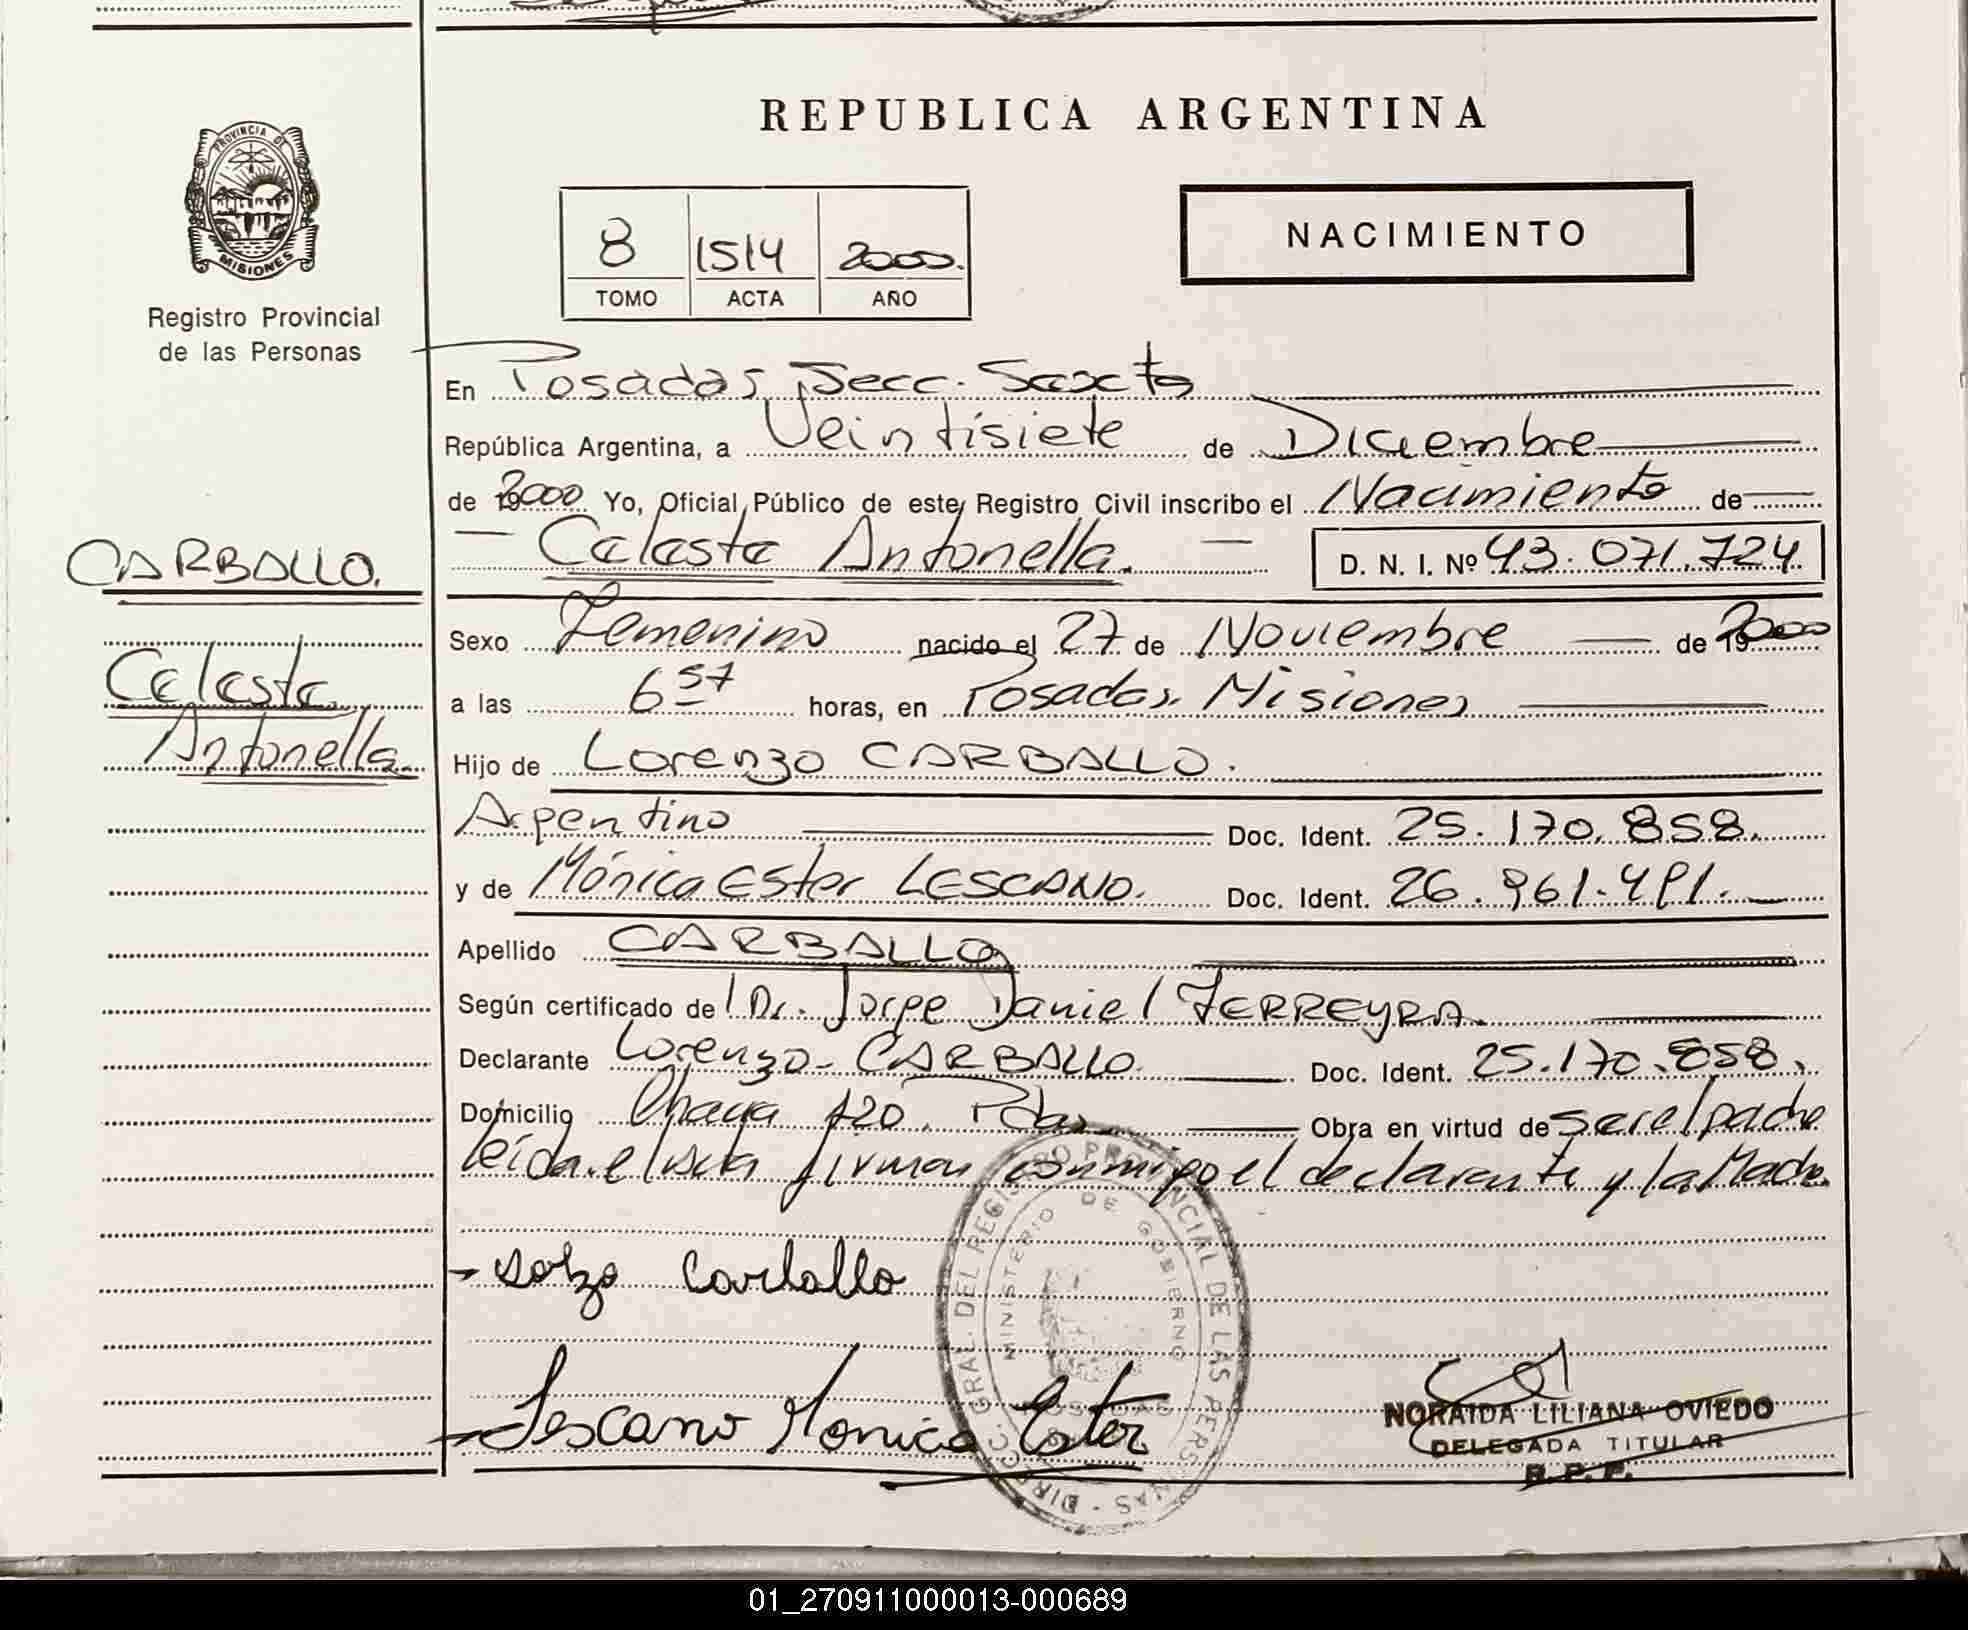 REPUBLICA ARGENTINA
PROVINCIA DE
MISIONES
Registro Provincial
de las Personas
8 1514 2000.
TOMO ACTA AÑO
NACIMIENTO
En Posadas, Secc. Sexta
República Argentina, a Veintisiete de Diciembre
de 2000 Yo, Oficial Público de este Registro Civil inscribo el Nacimiento de
Celeste Antonella. D. N. I. Nº 43.071.724
CARBALLO.
Celeste
Antonella
Sexo Femenino nacido el 27 de Noviembre de 2000
a las 6 57 horas, en Posadas. Misiones
Hijo de Lorenzo CARBALLO.
Argentino Doc. Ident. 25.170.858.
y de Mónica Ester LESCANO. Doc. Ident. 26.961.491.
Apellido CARBALLO
Según certificado de Dr. Jorge Daniel FERREYRA.
Declarante Lorenzo CARBALLO. Doc. Ident. 25.170.858.
Domicilio 120. Pdas Obra en virtud de ser el padre
leída el acta firman conmigo el declarante y la Madre.
Carballo
Lescano Monica Ester
DIRECC. GRAL. DEL REGISTRO PROVINCIAL DE LAS PERSONAS
MINISTERIO DE GOBIERNO
NORAIDA LILIANA OVIEDO
DELEGADA TITULAR
R. P. P.
01_270911000013-000689